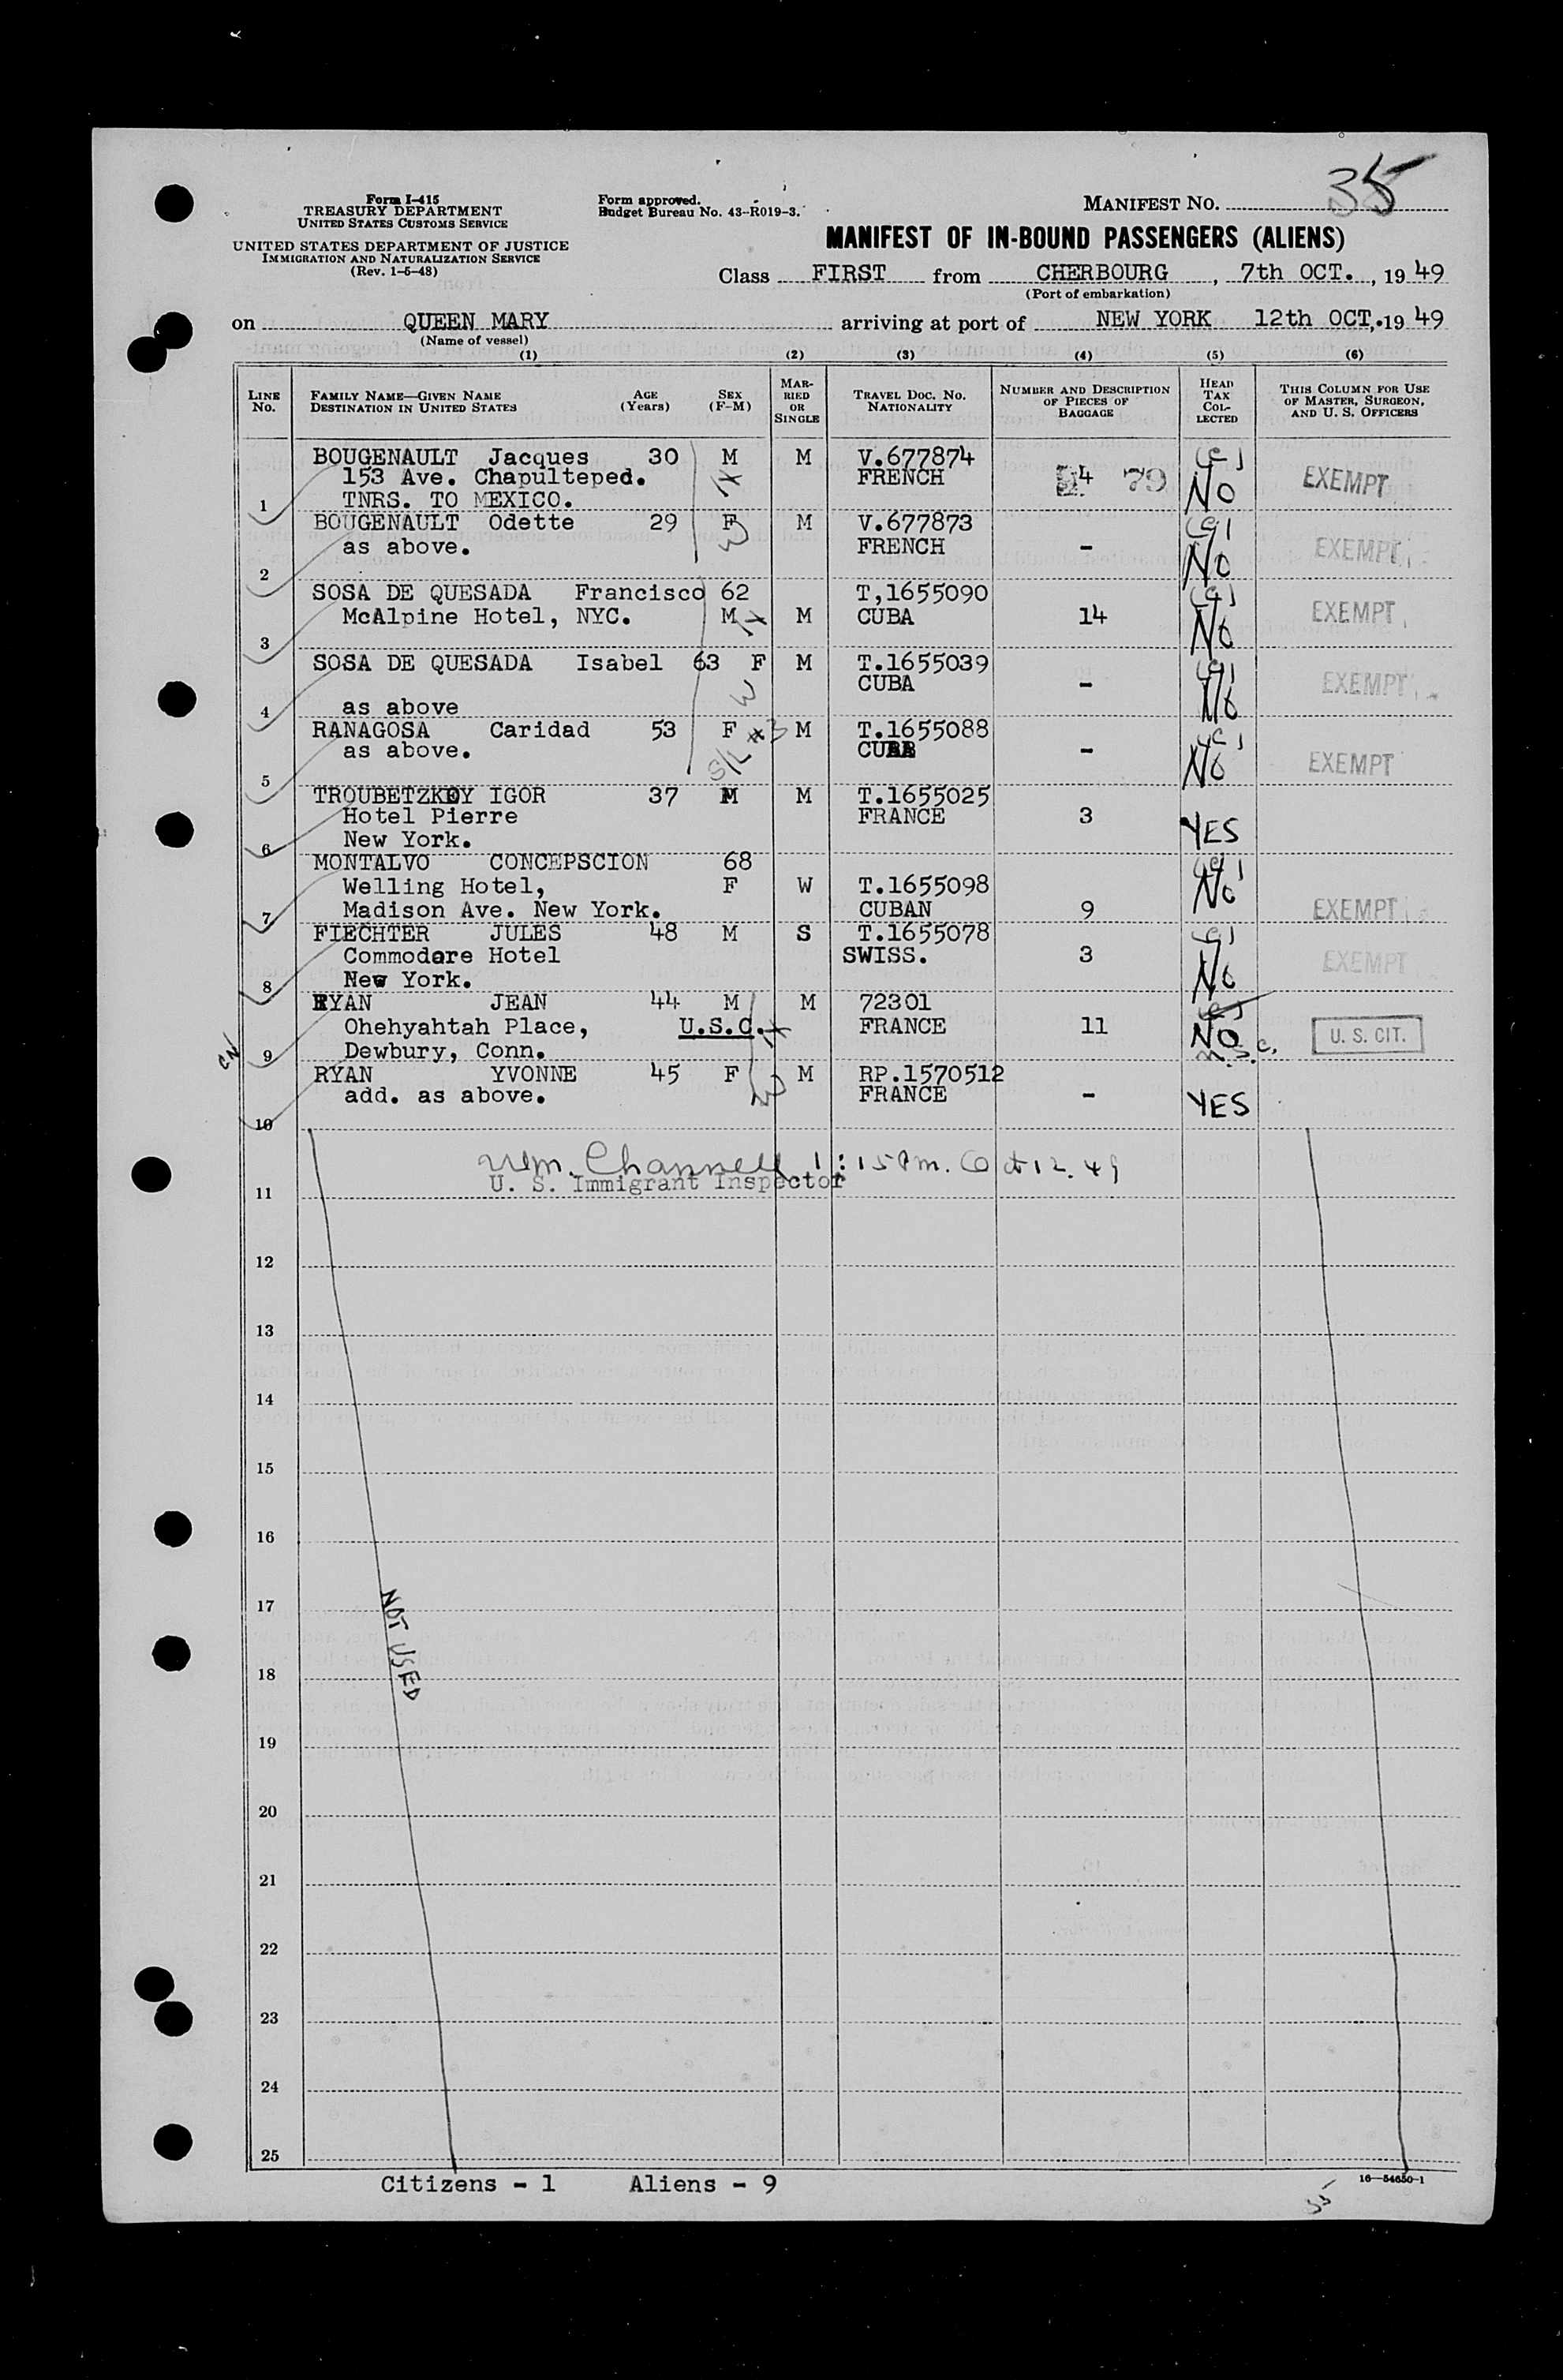 35
Form I-415
TREASURY DEPARTMENT
UNITED STATES CUSTOMS SERVICE
UNITED STATES DEPARTMENT OF JUSTICE
IMMIGRATION AND NATURALIZATION SERVICE
(Rev. 1-5-48)
Form approved.
Budget Bureau No. 43-R019-3.
MANIFEST NO.
MANIFEST OF IN-BOUND PASSENGERS (ALIENS)
Class FIRST from CHERBOURG, 7th OCT., 1949
(Port of embarkation)
on QUEEN MARY arriving at port of NEW YORK 12th OCT,.1949
(Name of vessel)
(1) (2) (3) (4) (5) (6)
LINE NO. FAMILY NAME—GIVEN NAME DESTINATION IN UNITED STATES AGE (Years) SEX (F-M) MARRIED OR SINGLE TRAVEL DOC. NO. NATIONALITY NUMBER AND DESCRIPTION OF PIECES OF BAGGAGE HEAD TAX COLLECTED THIS COLUMN FOR USE OF MASTER, SURGEON, AND U. S. OFFICERS
BOUGENAULT Jacques 30 M M V.677874
153 Ave. Chapulteped. FRENCH 4 79 No EXEMPT
1 TNRS. TO MEXICO.
BOUGENAULT Odette 29 F M V.677873
as above. FRENCH - No EXEMPT
2
SOSA DE QUESADA Francisco 62 T,1655090
McAlpine Hotel, NYC. M M CUBA 14 No EXEMPT
3
SOSA DE QUESADA Isabel 63 F M T.1655039
CUBA - No EXEMPT
4 as above
RANAGOSA Caridad 53 F M T.1655088
as above. CUBA - No EXEMPT
5
TROUBETZKOY IGOR 37 M M T.1655025
Hotel Pierre FRANCE 3 YES
6 New York.
MONTALVO CONCEPSCION 68
Welling Hotel, F W T.1655098 No
7 Madison Ave. New York. CUBAN 9 EXEMPT
FIECHTER JULES 48 M S T.1655078
Commodare Hotel SWISS. 3 No EXEMPT
8 New York.
RYAN JEAN 44 M M 72301
Ohehyahtah Place, U.S.C. FRANCE 11 NO U. S. CIT.
9 Dewbury, Conn.
RYAN YVONNE 45 F M RP.1570512
add. as above. FRANCE - YES
10
Wm. Channell 1:15 Pm. Oct 12. 49
U. S. Immigrant Inspector
11
12
13
14
15
16
17
NOT USED
18
19
20
21
22
23
24
25
Citizens - 1 Aliens - 9
16—54650-1